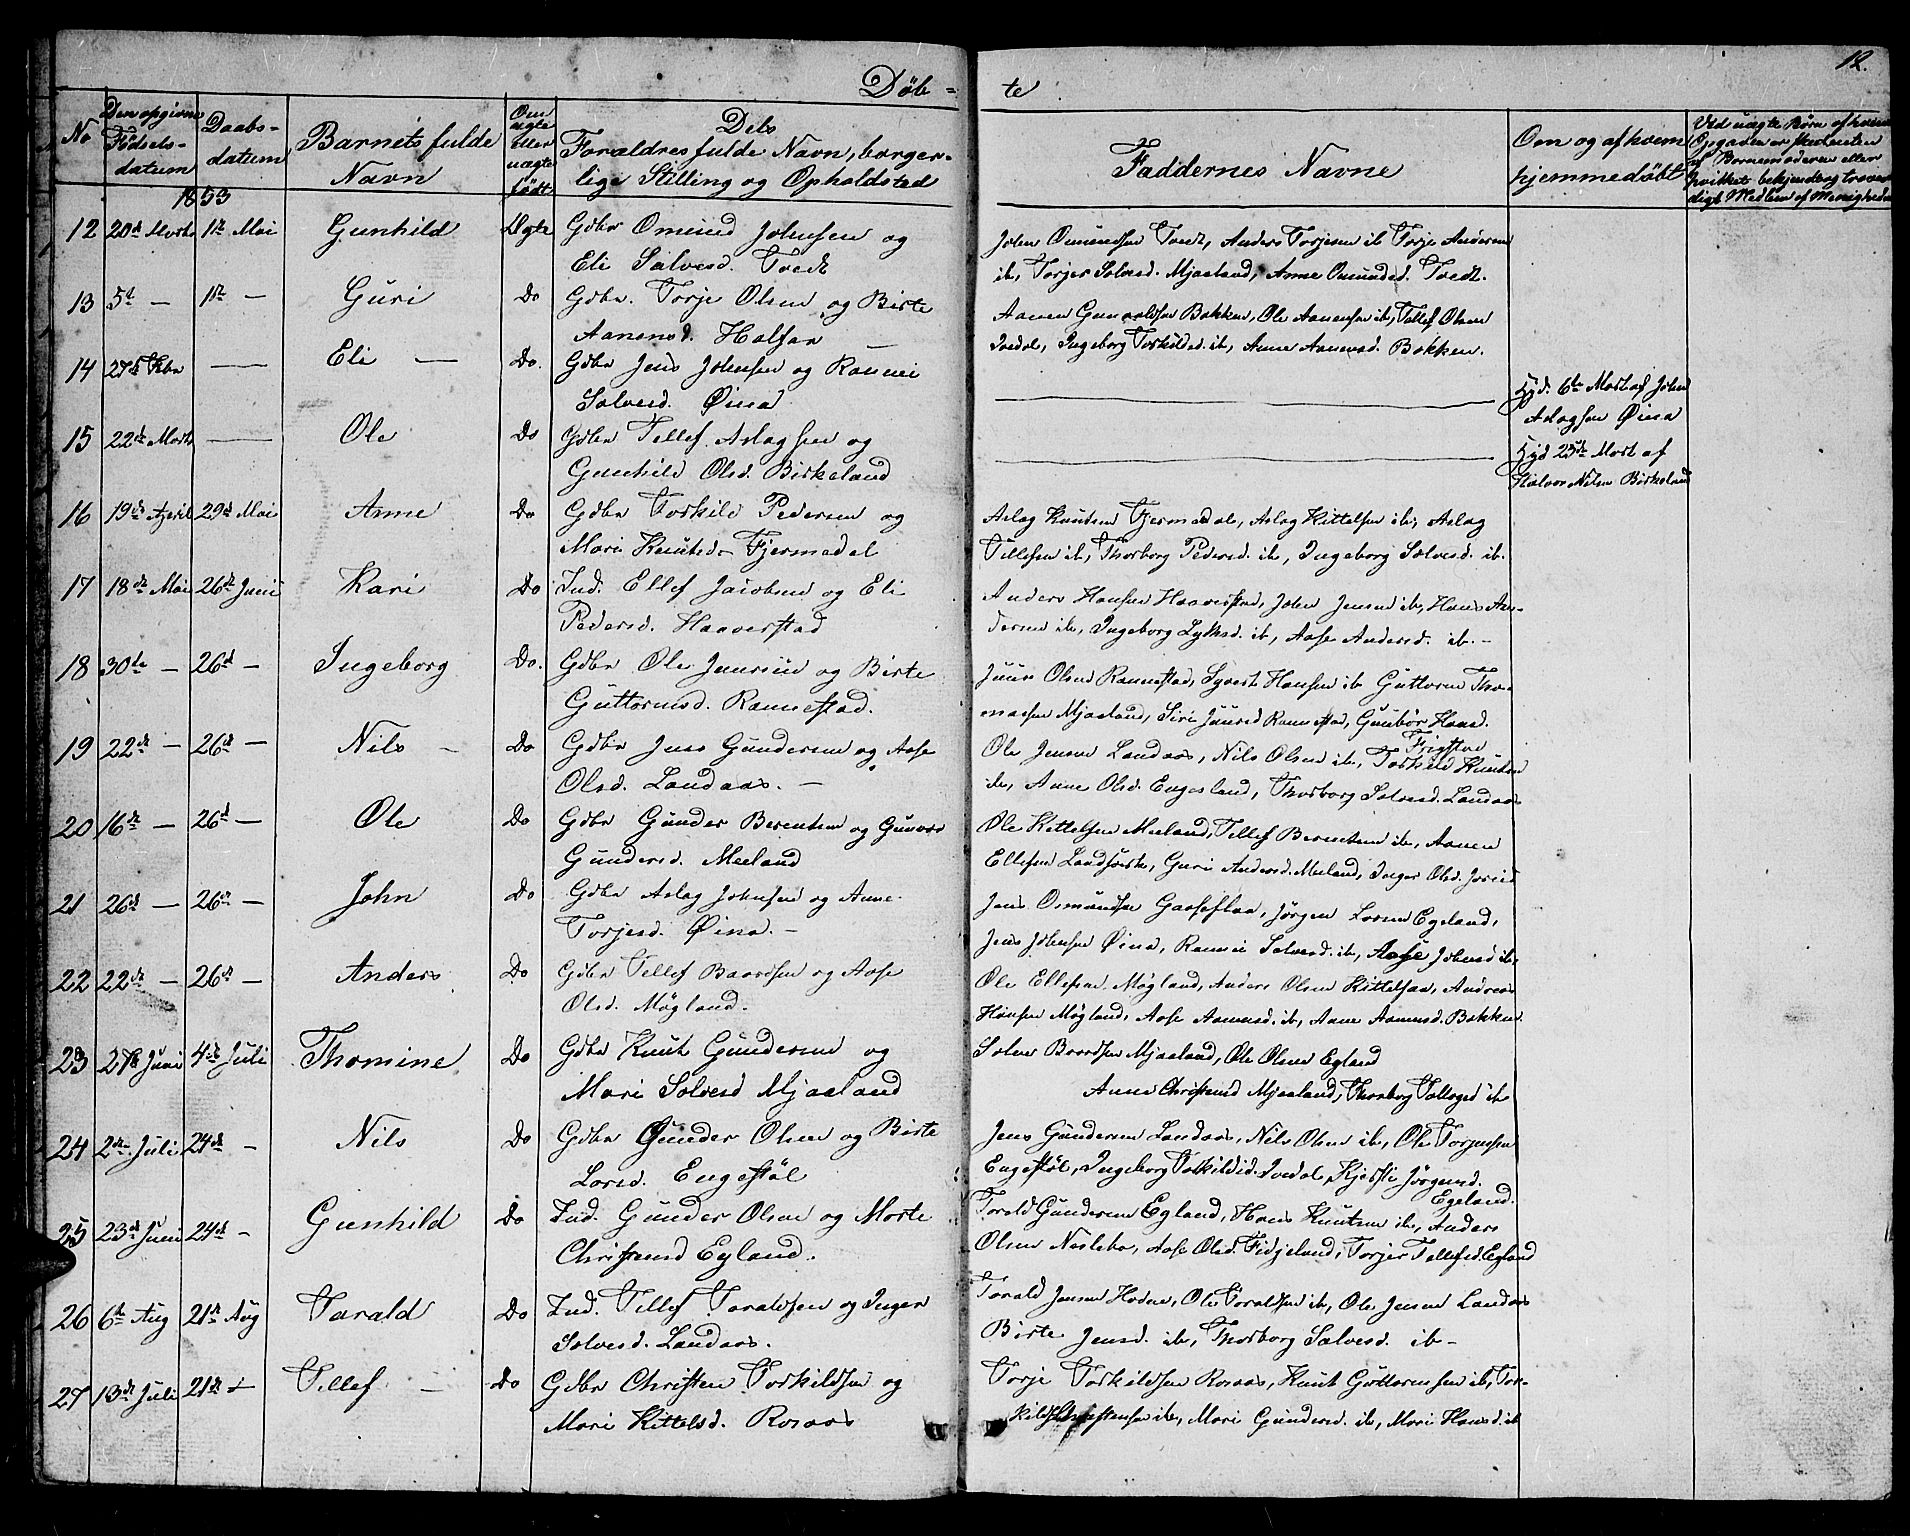 Døb-te
12.
No
Den opgivne Fødsels-datum
Daabs-datum
Barnets fulde Navn
Om ægte eller uægte født
Dets Forældres fulde Navn, borger-lige Stilling og Opholdsted
Faddernes Navne
Om og af hvem hjemmedøbt
Ved uægte Børn af hvem Opgaven er skeet enten af Barnemoderen eller hvilket bekjendt og trovær-digt Medlem af Menigheden
1853
12 20de Marts 1ste Mai Gunhild Ægte Gdbr Omund Johnsen og
Eli Salvesd. Tvedt
John Omundsen Tvedt, Anders Torjesen ib, Torje Andersen
ib, Torjer Solvesd. Mjaaland, Anne Omundsd. Tvedt.
13 5te — 1ste — Guri Do Gdbr. Torje Olsen og Birte
Aanensd. Halfar —
Aanen Gunvaldsen Bakken, Ole Aanensen ib, Tellef Olsen
Ivedal, Ingeborg Torkildsd. ib, Anne Aanensd. Bakken.
14 27de Fbr — Eli — Do. Gdbr Jens Johnsen og Ronnei
Solvesd. Øina
Hjd. 6te Mart af John
Aslagsen Øina
15 22de Marts — Ole Do Gdbr Tellef Aslagsen og
Gunhild Olsd. Birkeland
Hjd 25de Mart af
Halvor Nilsen Birkeland
16 19de April 29de Mai Anne Do Gdbr Torkild Pedersen og
Mari Knutsd. Fjermedal
Aslag Knutsen Fjermedal, Aslag Kittelsen ib, Aslag
Tellefsen ib, Thorborg Pedersd. ib, Ingeborg Solvesd. ib.
17 18de Mai 26de Juni Kari Do Ind. Ellef Jacobsen og Eli
Pedersd. Haaverstad
Anders Hansen Haaverstad, John Jensen ib, Hans An-
dersen ib, Ingeborg Lyksd. ib, Aase Andersd. ib.—
18 30te — 26de — Ingeborg Do. Gdbr Ole Juursen og Birte
Guttormsd. Rannestad.
Juur Olsen Rannestad, Syvert Hansen ib Guttorm Tho-
massen Mjaaland, Siri Juursd Rannestad, Gunbør Hansd.
Frigstad
19 22de — 26de — Nils — Do Gdbr Jens Gundersen og Aase
Olsd. Landaas. —
Ole Jensen Landaas, Nils Olsen ib, Torkild Knutsen
ib, Anne Olsd. Engesland, Thorborg Solvesd. Landaas
20 16de — 26de — Ole Do Gdbr Gunder Berentsen og Gunvor
Gundersd. Meeland
Ole Kittelsen Meeland, Tellef Berentsen ib, Aanen
Ellefsen, Guri Andersd. Meeland, Inger Olsd.
21 26de — 26de — John Do Gdbr Aslag Johnsen og Anne
Torjesd. Øina. —
Jens Osmundsen Gaaseflaa, Jørgen Larsen Egeland,
Jens Johnsen Øina, Rannei Solvesd. ib, Aase Johnsd ib,
22 22de — 26de — Anders Do Gdbr Tellef Baardsen og Aase
Olsd. Møgland.
Ole Ellefsen Møgland, Anders Olsen Kittelsaa, Andreas
Hansen Møgland, Aase Aanensd. ib, Anne Aanensd. Bakken.
23 27de Juni 4de Juli Thomine Do Gdbr Knut Gundersen og
Mari Solvesd Mjaaland
Solve Baardsen Mjaaland, Ole Olsen Egland
Anne Christensd Mjaaland, Thorborg Salvesd ib
24 2den Juli 24de — Nils Do Gdbr Gunder Olsen og Birte
Larsd. Engestøl
Jens Gundersen Landaas, Nils Olsen ib, Ole Torjussen
Engestøl, Ingeborg Torkildsd. Ivedal, Kjersti Jørgensd.
Egeland.
25 23de Juni 24de — Gunhild Do Ind. Gunder Olsen og Marte
Christensd Egland.
Torald Gundersen Egland, Hans Knutsen ib, Anders
Olsen Neslebo, Aase Olsd. Fidjeland, Torjer Tellefsd. Egland
26 6te Aug 21de Aug Tarald Do Ind. Tellef Toraldsen og Inger
Solvesd. Landaas.
Torald Jensen Hodne, Ole Toraldsen ib, Ole Jensen Landaas
Birte Jensd. ib, Thorborg Solvesd. ib—
27 13de Juli 21de — Tellef — Do Gdbr Christen Torkildsen og
Mari Kittelsd. Rosaas
Torje Torkildsen Rosaas, Knut Guttormsen ib, Tor-
kild Christensen ib, Mari Gundersd. ib, Mari Hansd. ib